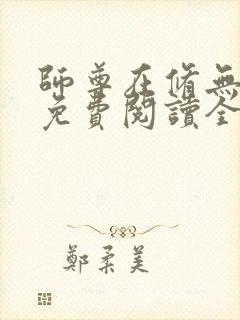 師尊在脩無
免費閱讀全
鄭柔美